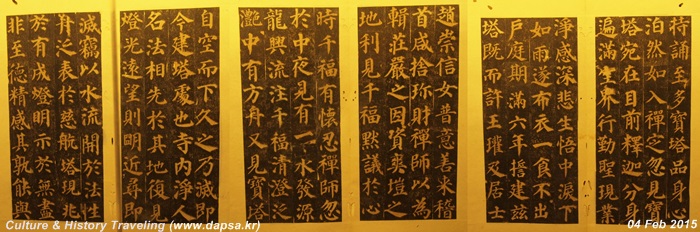 持誦至多寶塔品身心
泊然如入禪定忽見寶
塔宛在目前釋迦分身
遍滿空界行勤聖現業
淨感深悲生悟中淚下
如雨遂布衣一食不出
戶庭期滿六年誓建茲
塔既而許王瓘及居士
趙崇信女普意善來稽
首咸捨珍財禪師以為
輯莊嚴之因資爽塏之
地利見千福默議於心
時千福有懷忍禪師忽
於中夜見有一水發源
龍興流注千福清澄泛
灩中有方舟又見寶塔
自空而下久之乃滅即
今建塔處也寺內淨人
名法相先於其地復見
燈光遠望則明近尋即
滅竊以水流開於法性
舟之表於慈航塔現兆
於有成燈明示於無盡
非至德精感其孰能與
Culture & History Traveling (www.dapsa.kr)
04 Feb 2015